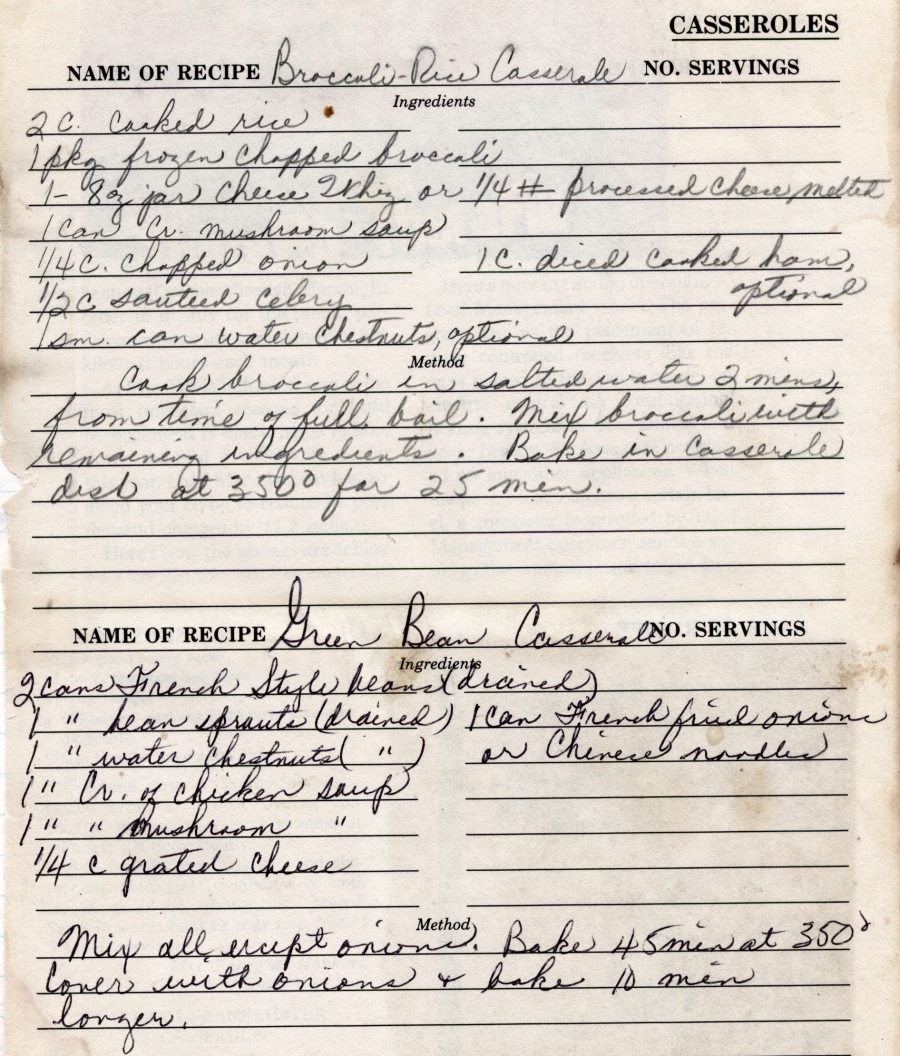 CASSEROLES
NAME OF RECIPE Broccoli-Rice Casserole NO. SERVINGS
Ingredients
2 c. cooked rice
1 pkg frozen chopped broccoli
1- 8oz jar Cheese Whiz or 1/4 # processed cheese melted
1 can Cr. mushroom soup
1/4 c. chopped onion 1 c. diced cooked ham,
1/2 c sauteed celery optional
1 sm. can water chestnuts, optional
Method
Cook broccoli in salted water 2 mins,
from time of full boil. Mix broccoli with
remaining ingredients. Bake in casserole
dish at 350° for 25 min.
NAME OF RECIPE Green Bean Casserole NO. SERVINGS
Ingredients
2 cans French Style beans (drained)
1 " bean sprouts (drained) 1 can French fried onions
1 " water chestnuts ( " ) or Chinese noodles
1 " Cr. of chicken soup
1 " " mushroom "
1/4 c grated cheese
Method
Mix all except onions. Bake 45 min at 350°
Cover with onions & bake 10 min
longer.